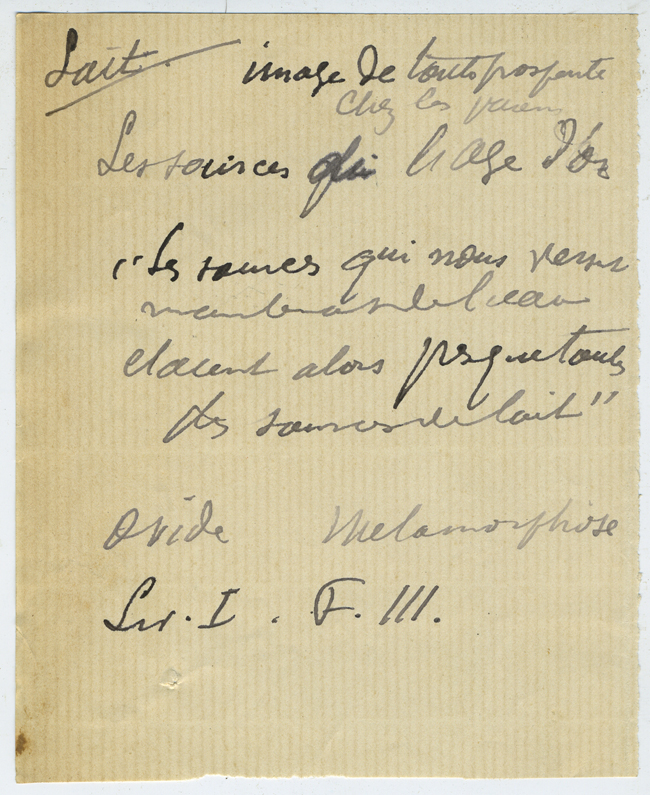 Lait. image de toute prosperite
chez les paiens
Les sources qui l'age d'or
"Les sources qui nous versent
maintenant de l'eau
étaient alors presque toutes
des sources de lait"
Ovide Metamorphose
Liv. I. F. III.